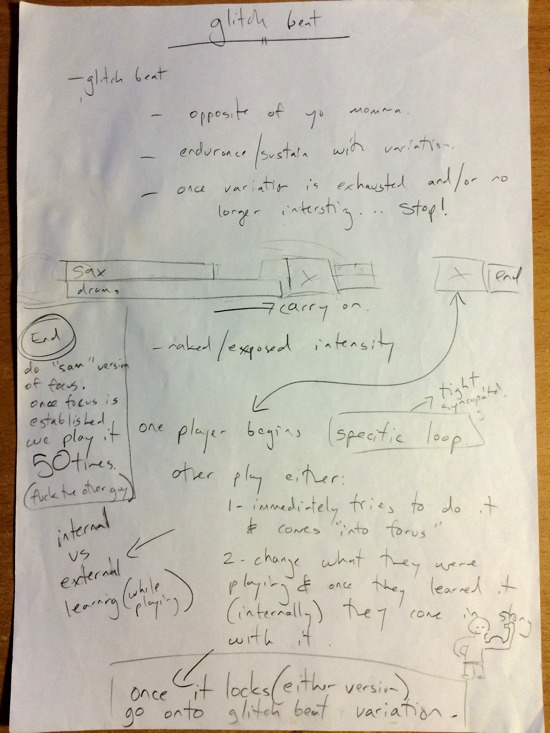 glitch beat
- glitch beat
- opposite of yo momma.
- endurance/sustain with variation.
- once variation is exhausted and/or no
longer interstig... Stop!
sax
drums
X
X
end
→ carry on.
- naked/exposed intensity
End
do "sam" version
of focus.
once focus is
established
we play it
50 times.
(fuck the other guy)
one player begins
specific loop.
tight
syncopated
other play either:
1 - immediately tries to do it
& comes "into forus"
2 - change what they were
playing & once they learned it
(internally) they come in strong
with it.
internal
vs
external
learning (while
playing)
once it locks (either version)
go onto glitch beat variation.